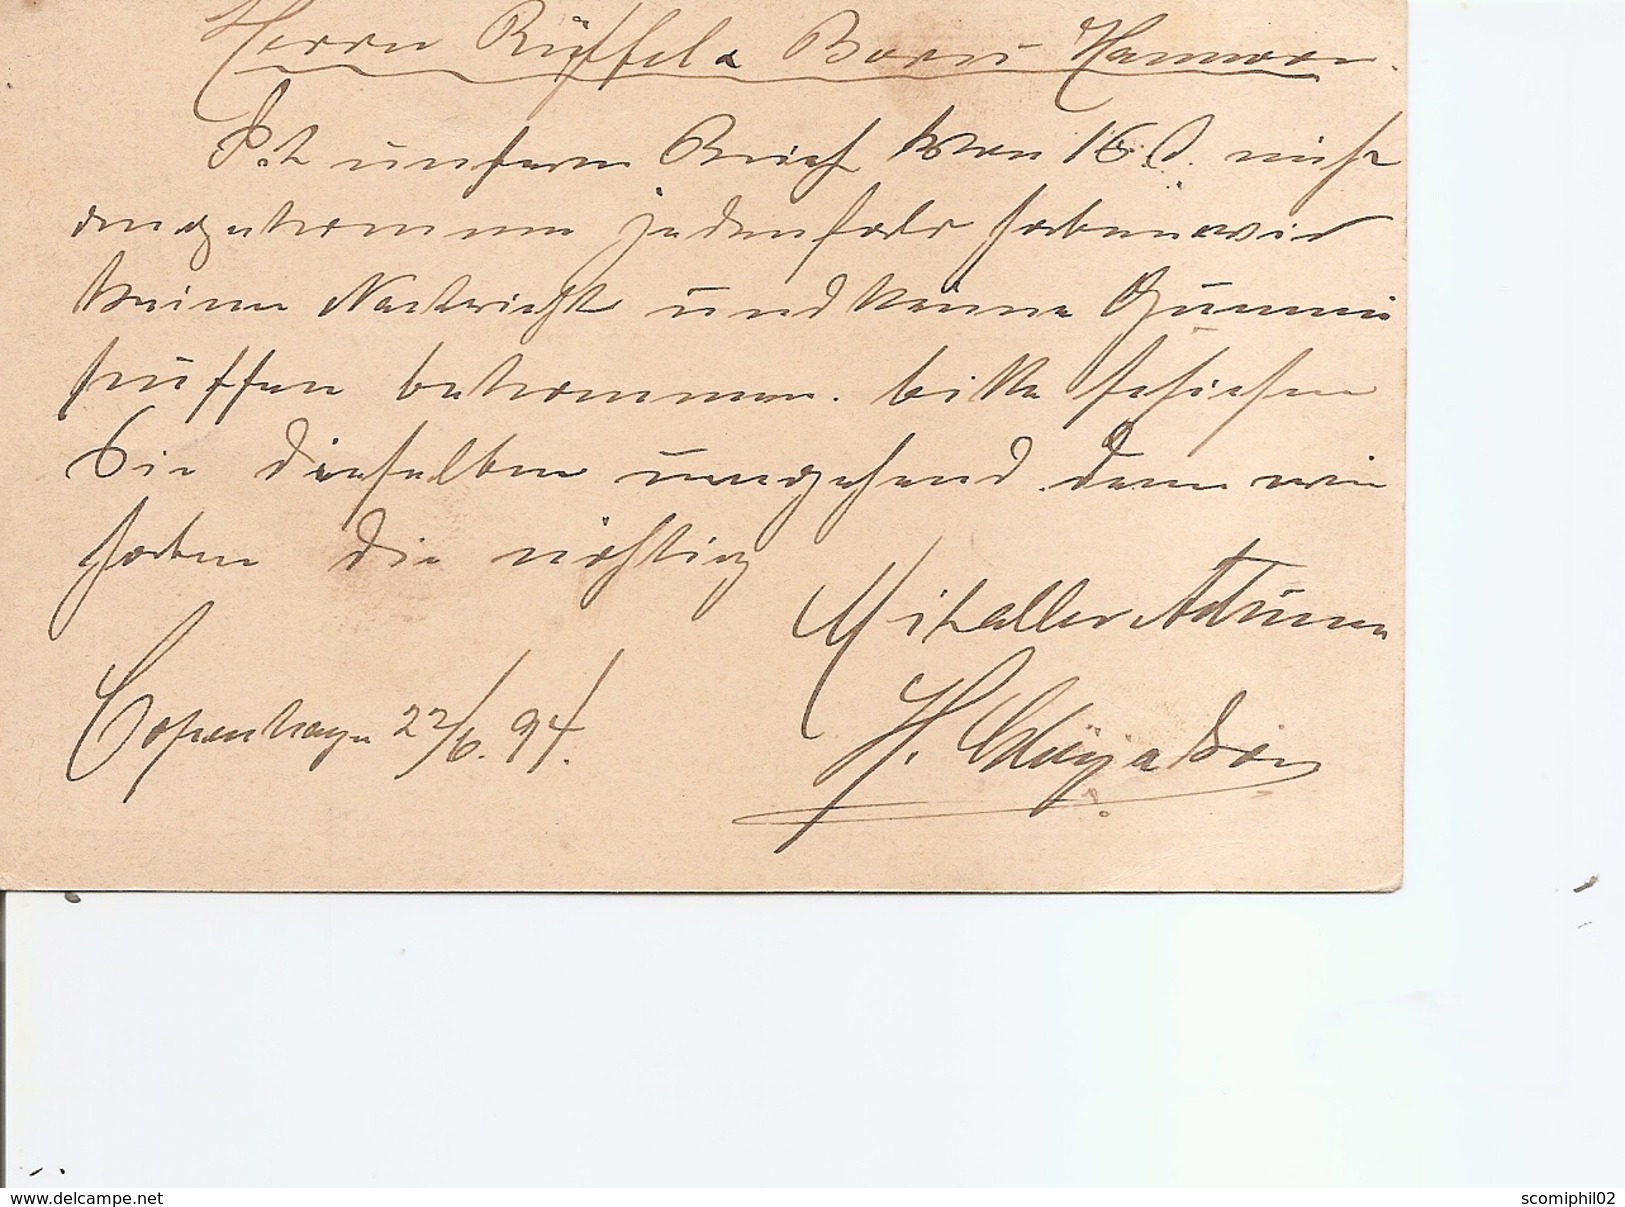 Herrn Rüffel & Born Hannover.
Ist unsern Brief von 16 d. nicht
angekommen jedenfals haben wir
keine Nachricht und keine Gummi
puffen bekommen. bitte schicken
Sie dieselben umgehend denn wir
haben die nöthig
Mit aller Achtung
Copenhagen 22/6. 94.
H.
www.delcampe.net
scomiphil02